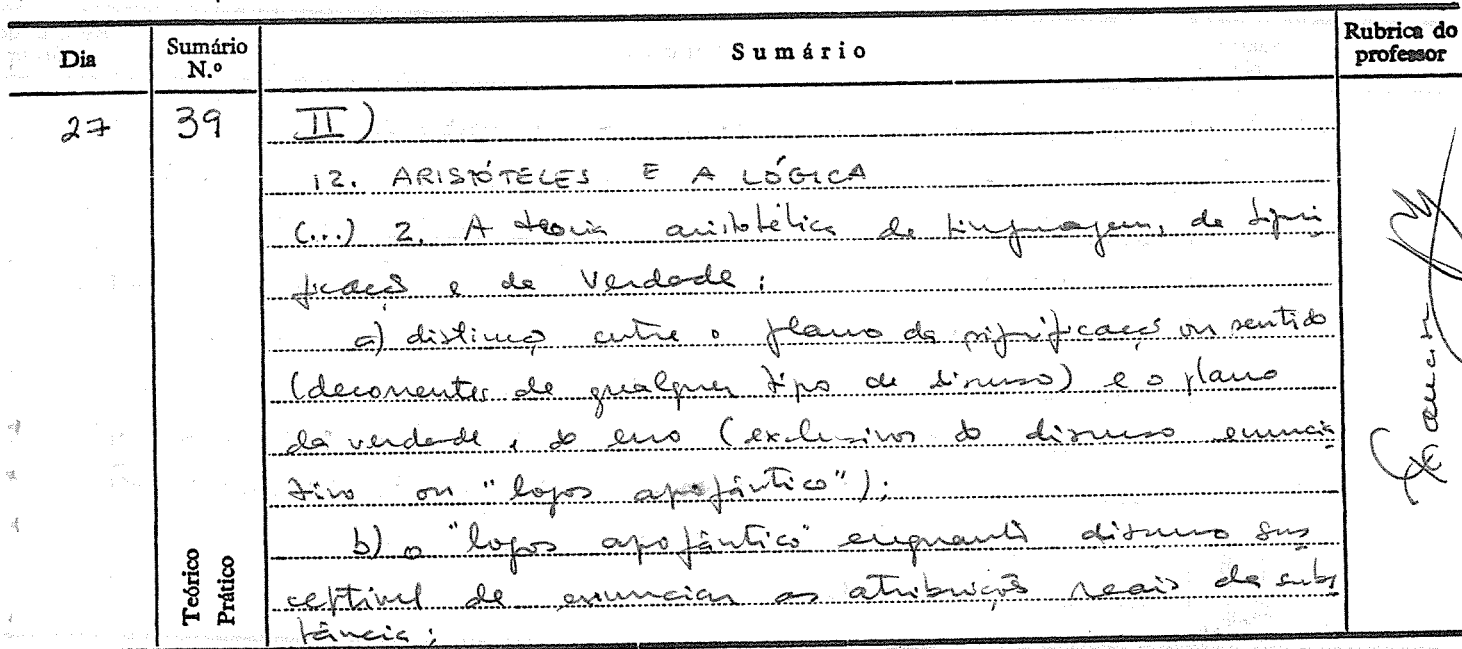 Dia Sumário N.º Sumário Rubrica do professor
27 39 II)
12. ARISTÓTELES E A LÓGICA
(...) 2. A teoria aristotélica da linguagem, da signi
ficação e da Verdade:
a) distinção entre o plano da significação ou sentido
(decorrentes de qualquer tipo de discurso) e o plano
da verdade e do erro (exclusivos do discurso enuncia
tivo ou "logos apofântico");
b) o "logos apofântico" enquanto discurso sus
ceptível de enunciar as atribuições reais da subs
tância;
Teórico
Prático